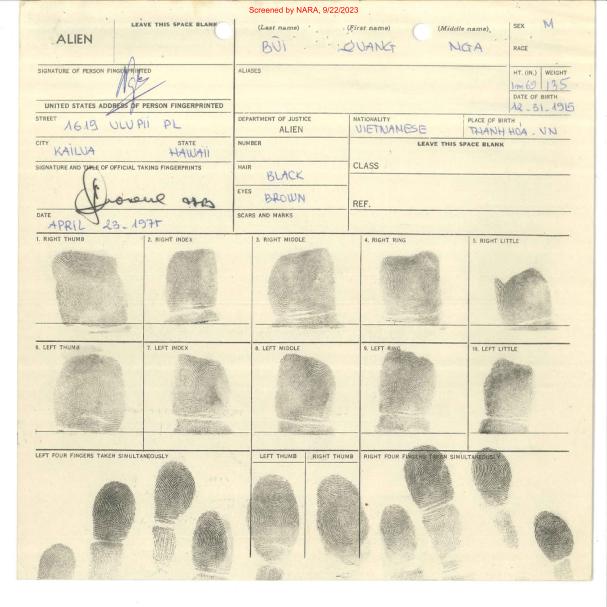 Screened by NARA, 9/22/2023
ALIEN
LEAVE THIS SPACE BLANK
(Last name) (First name) (Middle name)
BÙI QUANG NGA
SEX M
RACE
SIGNATURE OF PERSON FINGERPRINTED
ALIASES
HT. (IN.) WEIGHT
1m69 135
UNITED STATES ADDRESS OF PERSON FINGERPRINTED
DATE OF BIRTH
12-31-1915
STREET
1619 ULUPII PL
DEPARTMENT OF JUSTICE
ALIEN
NATIONALITY
VIETNAMESE
PLACE OF BIRTH
THANH HOÁ - VN
CITY STATE
KAILUA HAWAII
NUMBER
LEAVE THIS SPACE BLANK
SIGNATURE AND TITLE OF OFFICIAL TAKING FINGERPRINTS
HAIR
BLACK
CLASS
EYES
BROWN
REF.
DATE
APRIL 23-1975
SCARS AND MARKS
1. RIGHT THUMB 2. RIGHT INDEX 3. RIGHT MIDDLE 4. RIGHT RING 5. RIGHT LITTLE
6. LEFT THUMB 7. LEFT INDEX 8. LEFT MIDDLE 9. LEFT RING 10. LEFT LITTLE
LEFT FOUR FINGERS TAKEN SIMULTANEOUSLY LEFT THUMB RIGHT THUMB RIGHT FOUR FINGERS TAKEN SIMULTANEOUSLY